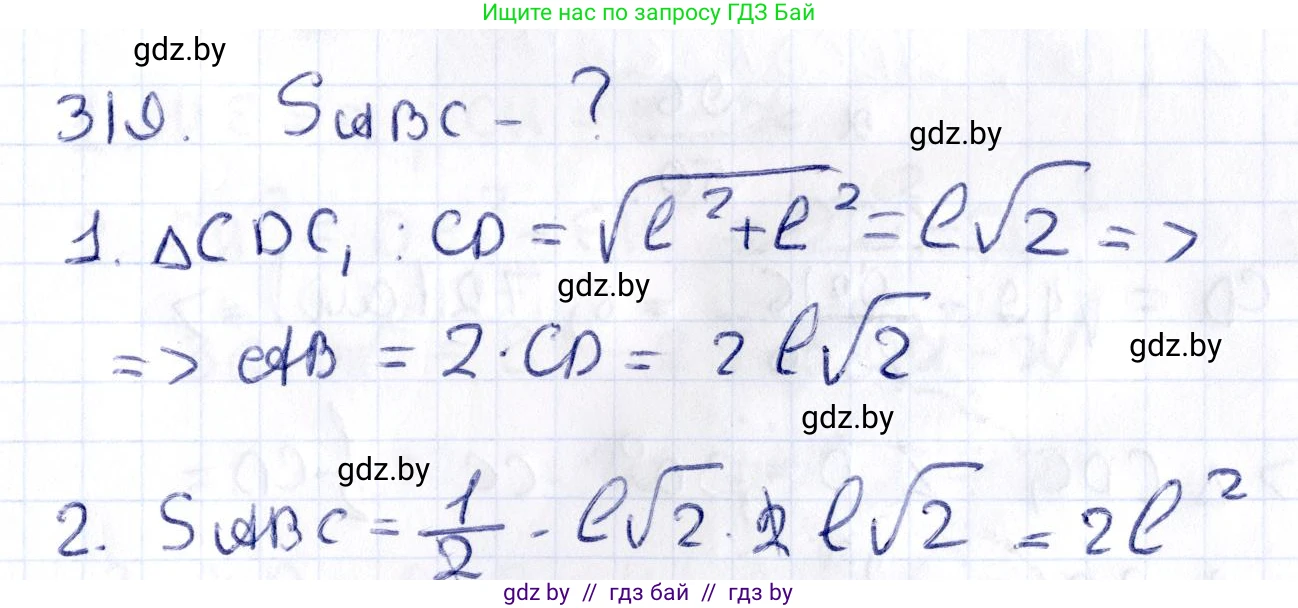 Ищите нас по запросу ГДЗ Бай
gdz.by
319. SABC - ?
gdz.by
1. ΔCDC₁ : CD = √(l²+l²) = l√2 =>
gdz.by
=> AB = 2·CD = 2l√2
gdz.by
gdz.by
gdz.by
2. SABC = 1/2 · l√2 · 2l√2 = 2l²
gdz.by // гдз бай // гдз by